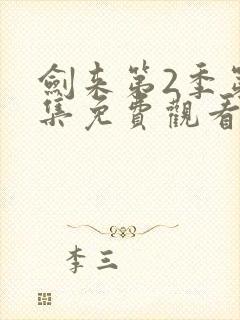 劍来第2季第
集免費觀看
李三